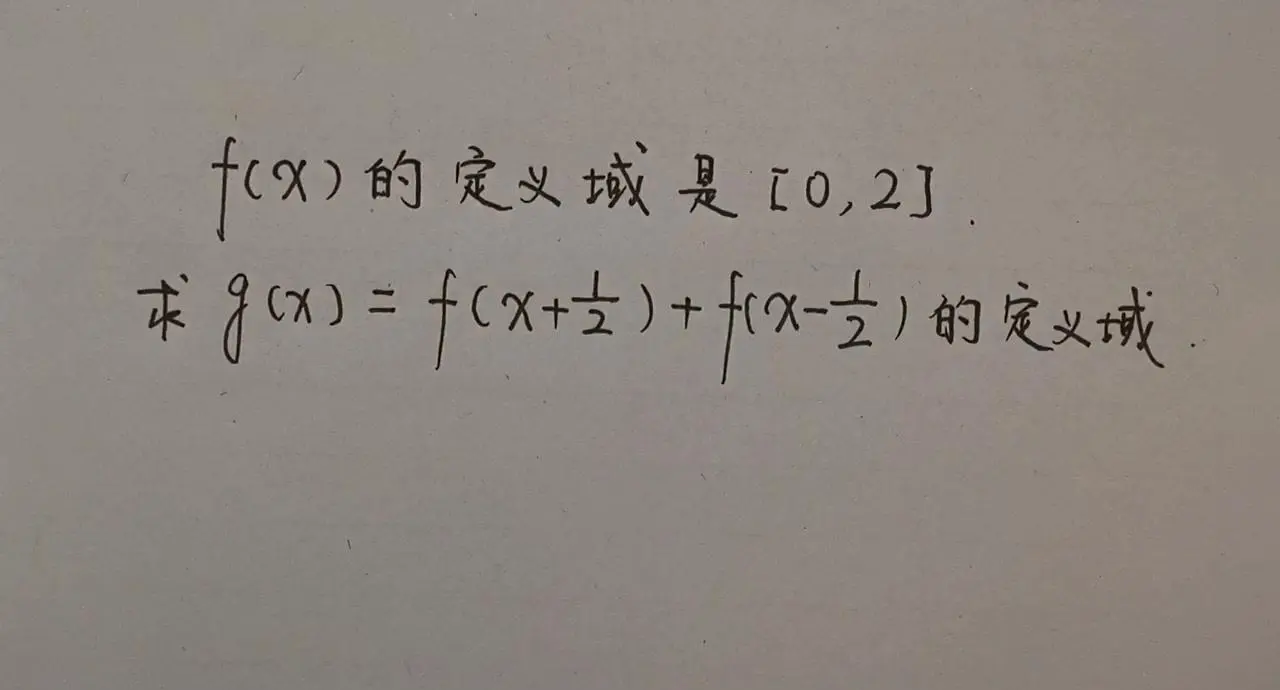 f(x)的定义域是[0,2].
求g(x)=f(x+1/2)+f(x-1/2)的定义域.